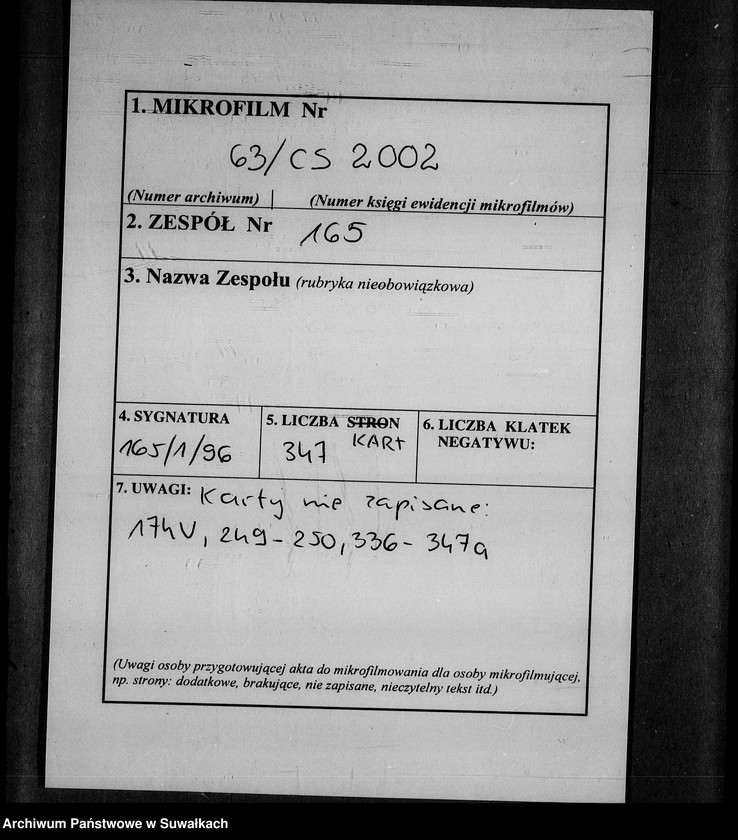 1. MIKROFILM Nr
63/CS 2002
(Numer archiwum) | (Numer księgi ewidencji mikrofilmów)
2. ZESPÓŁ Nr 165
3. Nazwa Zespołu (rubryka nieobowiązkowa)
4. SYGNATURA
165/1/96
5. LICZBA STRON
347 KART
6. LICZBA KLATEK
NEGATYWU:
7. UWAGI: Karty nie zapisane:
174V, 249-250, 336-347a
(Uwagi osoby przygotowującej akta do mikrofilmowania dla osoby mikrofilmującej,
np. strony: dodatkowe, brakujące, nie zapisane, nieczytelny tekst itd.)
Archiwum Państwowe w Suwałkach